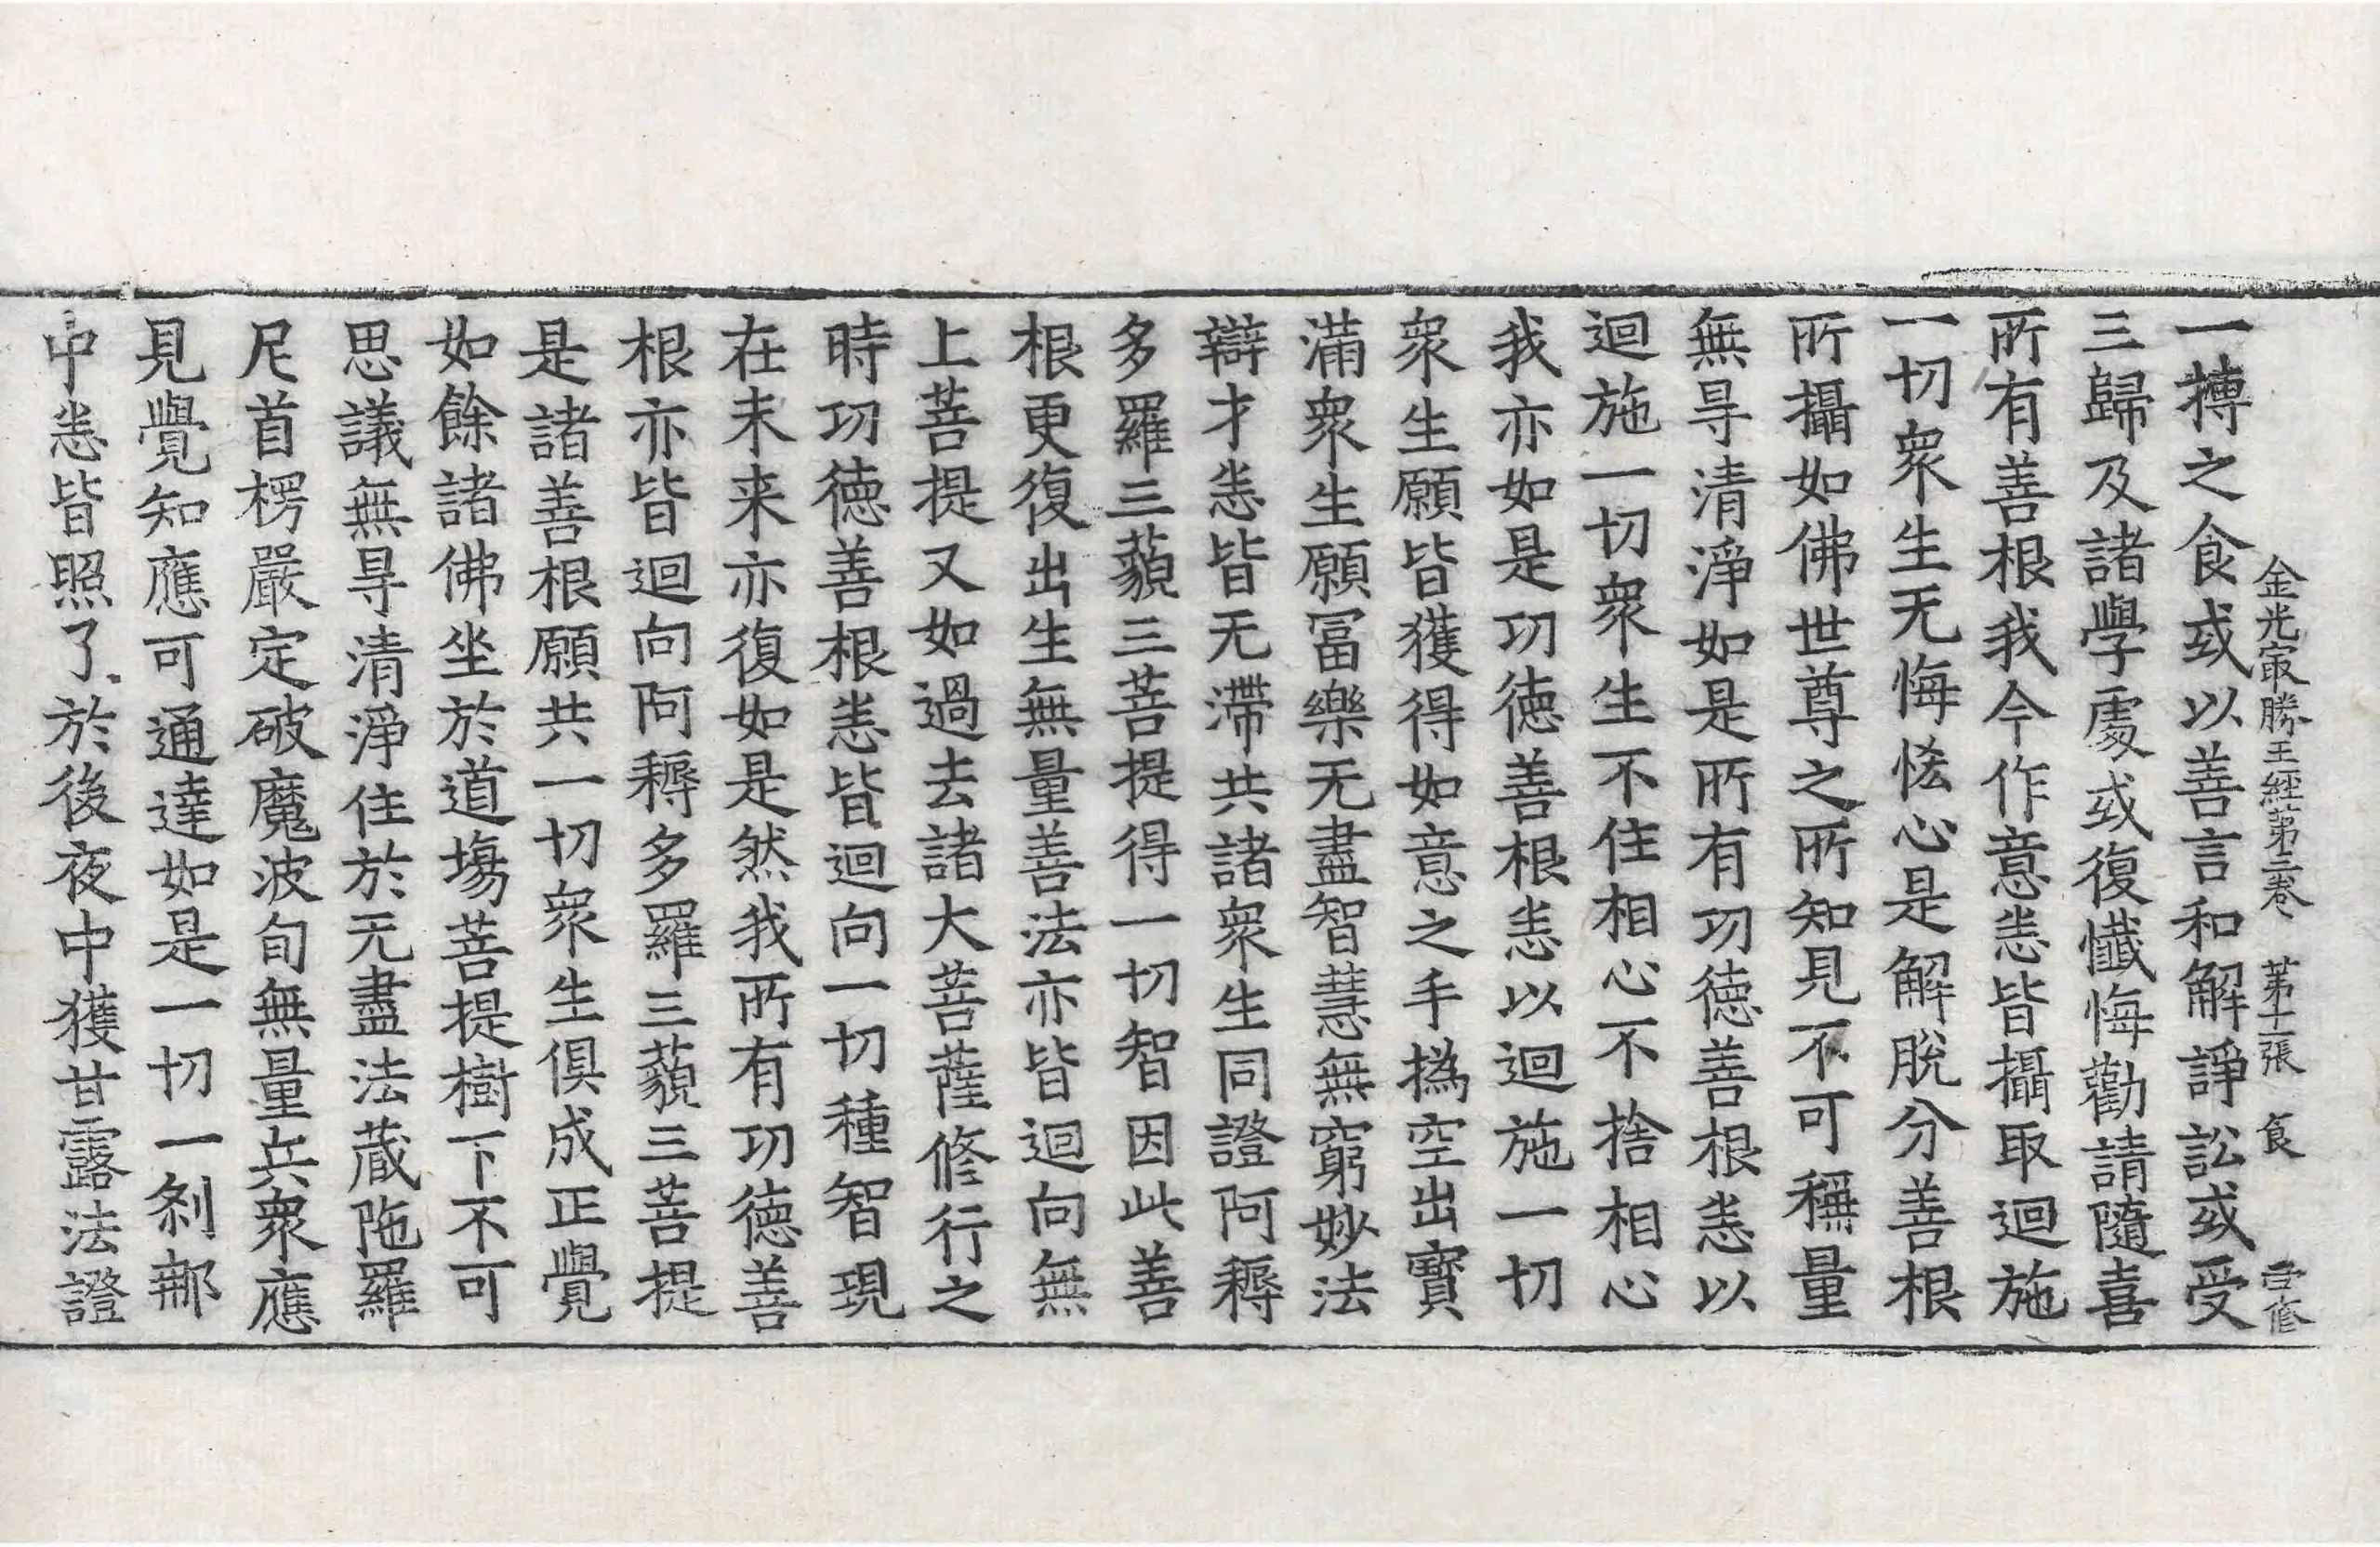 金光冣勝王經苐三卷 苐十二張 食 守修
一摶之食或以善言和解諍訟或受
三歸及諸學處或復懺悔勸請隨喜
所有善根我今作意悉皆攝取迴施
一切衆生无悔恡心是解脫分善根
所攝如佛世尊之所知見不可稱量
無㝵清淨如是所有功德善根悉以
迴施一切衆生不住相心不捨相心
我亦如是功德善根悉以迴施一切
衆生願皆獲得如意之手撝空出寶
滿衆生願冨樂无盡智慧無窮妙法
辯才悉皆无滯共諸衆生同證阿耨
多羅三藐三菩提得一切智因此善
根更復出生無量善法亦皆迴向無
上菩提又如過去諸大菩薩修行之
時功德善根悉皆迴向一切種智現
在未来亦復如是然我所有功德善
根亦皆迴向阿耨多羅三藐三菩提
是諸善根願共一切衆生俱成正覺
如餘諸佛坐於道場菩提樹下不可
思議無㝵清淨住於无盡法藏陁羅
尼首楞嚴定破魔波旬無量兵衆應
見覺知應可通達如是一切一刹那
中悉皆照了於後夜中獲甘露法證